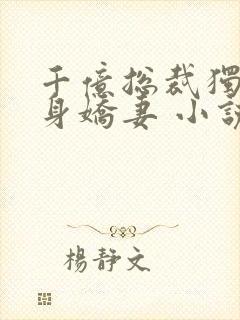 千億总裁獨
身嬌妻 小說
楊靜文